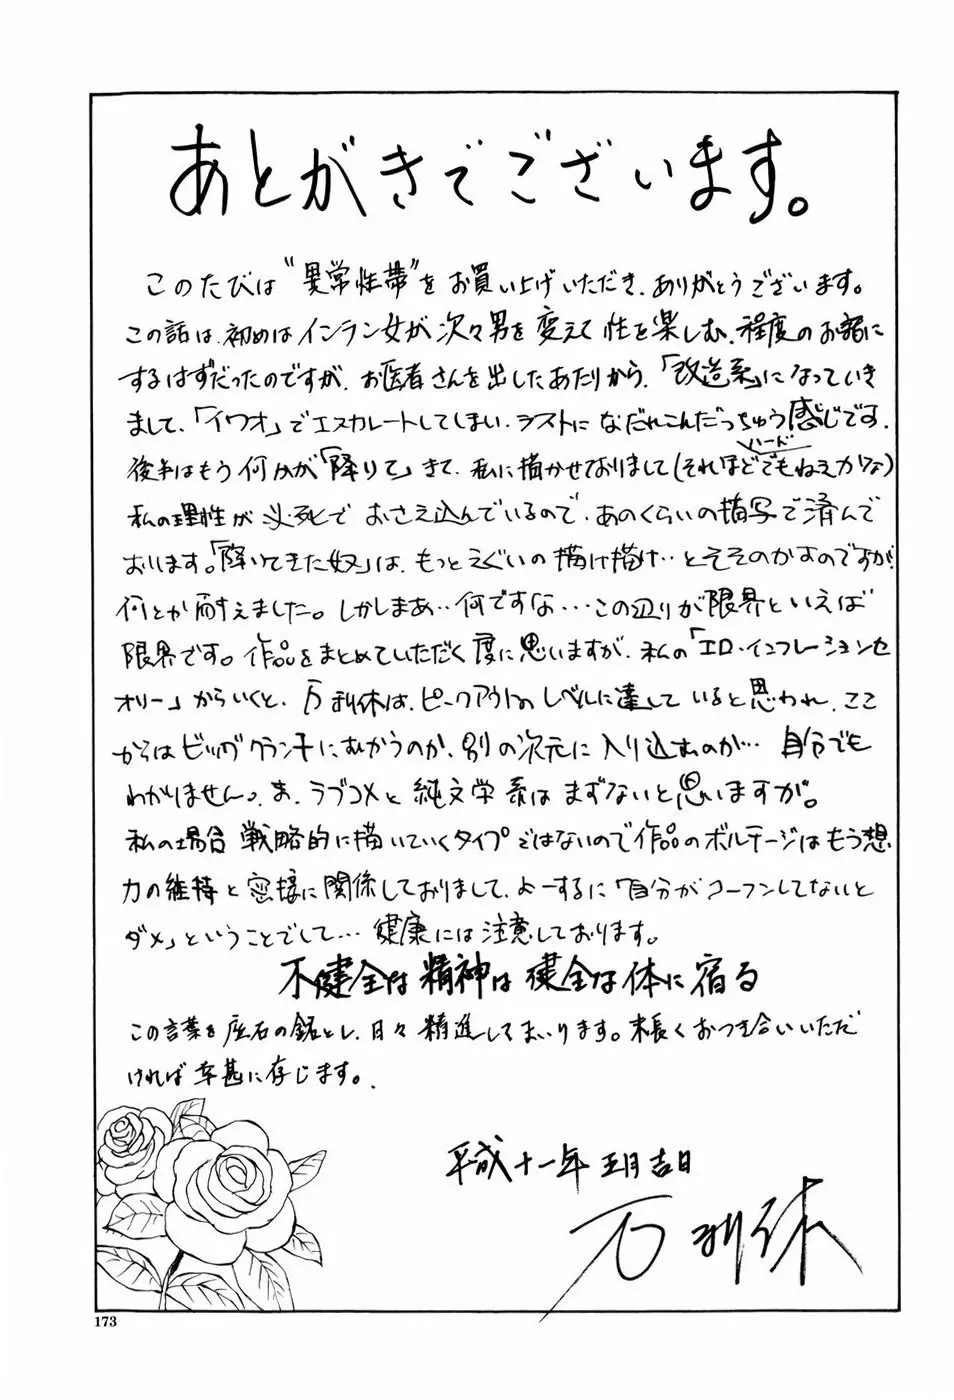 あとがきでございます。
このたびは“異常性帯”をお買い上げいただき、ありがとうございます。
この話は、初めはインラン女が次々男を変えて性を楽しむ、程度のお話に
するはずだったのですが、お医者さんを出したあたりから、「改造系」になっていき
まして、「イワオ」でエスカレートしてしまい、ラストになだれこんだっちゅう感じです。
後半はもう何かが「降りて」きて、私に描かせておりまして(それほどハードでもねえかな)
私の理性が必死でおさえ込んでいるので、あのくらいの描写で済んで
おります。「降りてきた奴」は、もっとえぐいの描け描け‥とそそのかすのですが、
何とか耐えました。しかしまあ‥何ですな‥‥この辺りが限界といえば
限界です。作品をまとめていただく度に思いますが、私の「エロ・インフレーションセ
オリー」からいくと、万利休は、ピークアウトのレベルに達していると思われ、ここ
からはビッグクランチにむかうのか、別の次元に入り込むのか…自分でも
わかりません。ま、ラブコメと純文学系はまずないと思いますが。
私の場合戦略的に描いていくタイプではないので作品のボルテージはもう想像
力の維持と密接に関係しておりまして、よーするに「自分がコーフンしてないと
ダメ」ということでして…健康には注意しております。
不健全な精神は健全な体に宿る
この言葉を座右の銘とし、日々精進してまいります。末長くおつき合いいただ
ければ幸甚に存じます。
平成十一年五月吉日
万利休
173